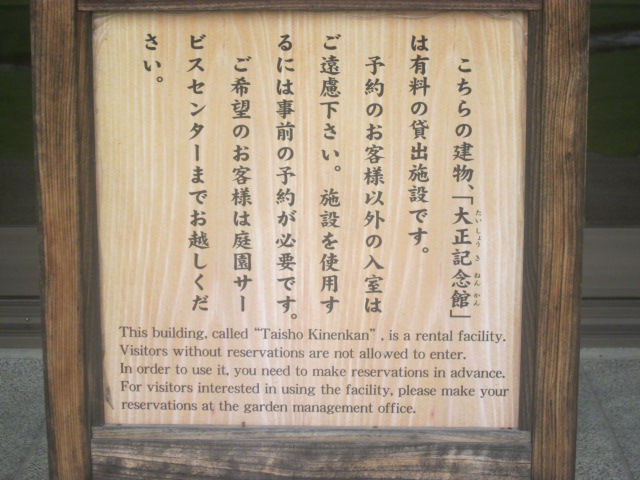 こちらの建物、「大正記念館」
たいしょうきねんかん
は有料の貸出施設です。
予約のお客様以外の入室は
ご遠慮下さい。施設を使用す
るには事前の予約が必要です。
ご希望のお客様は庭園サー
ビスセンターまでお越しくだ
さい。
This building, called "Taisho Kinenkan", is a rental facility.
Visitors without reservations are not allowed to enter.
In order to use it, you need to make reservations in advance.
For visitors interested in using the facility, please make your
reservations at the garden management office.